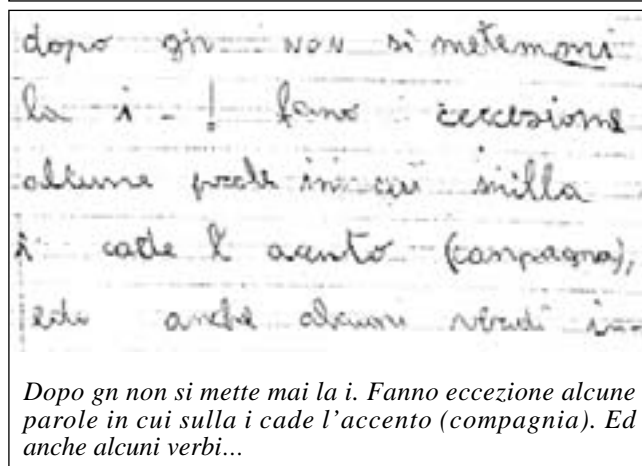 dopo gn NON si metemmi
la i - ! fano eccesione
alcune parole in cui sulla
i cade l' acento (conpagna),
ed anche alcuni verdi in-
Dopo gn non si mette mai la i. Fanno eccezione alcune
parole in cui sulla i cade l'accento (compagnia). Ed
anche alcuni verbi...